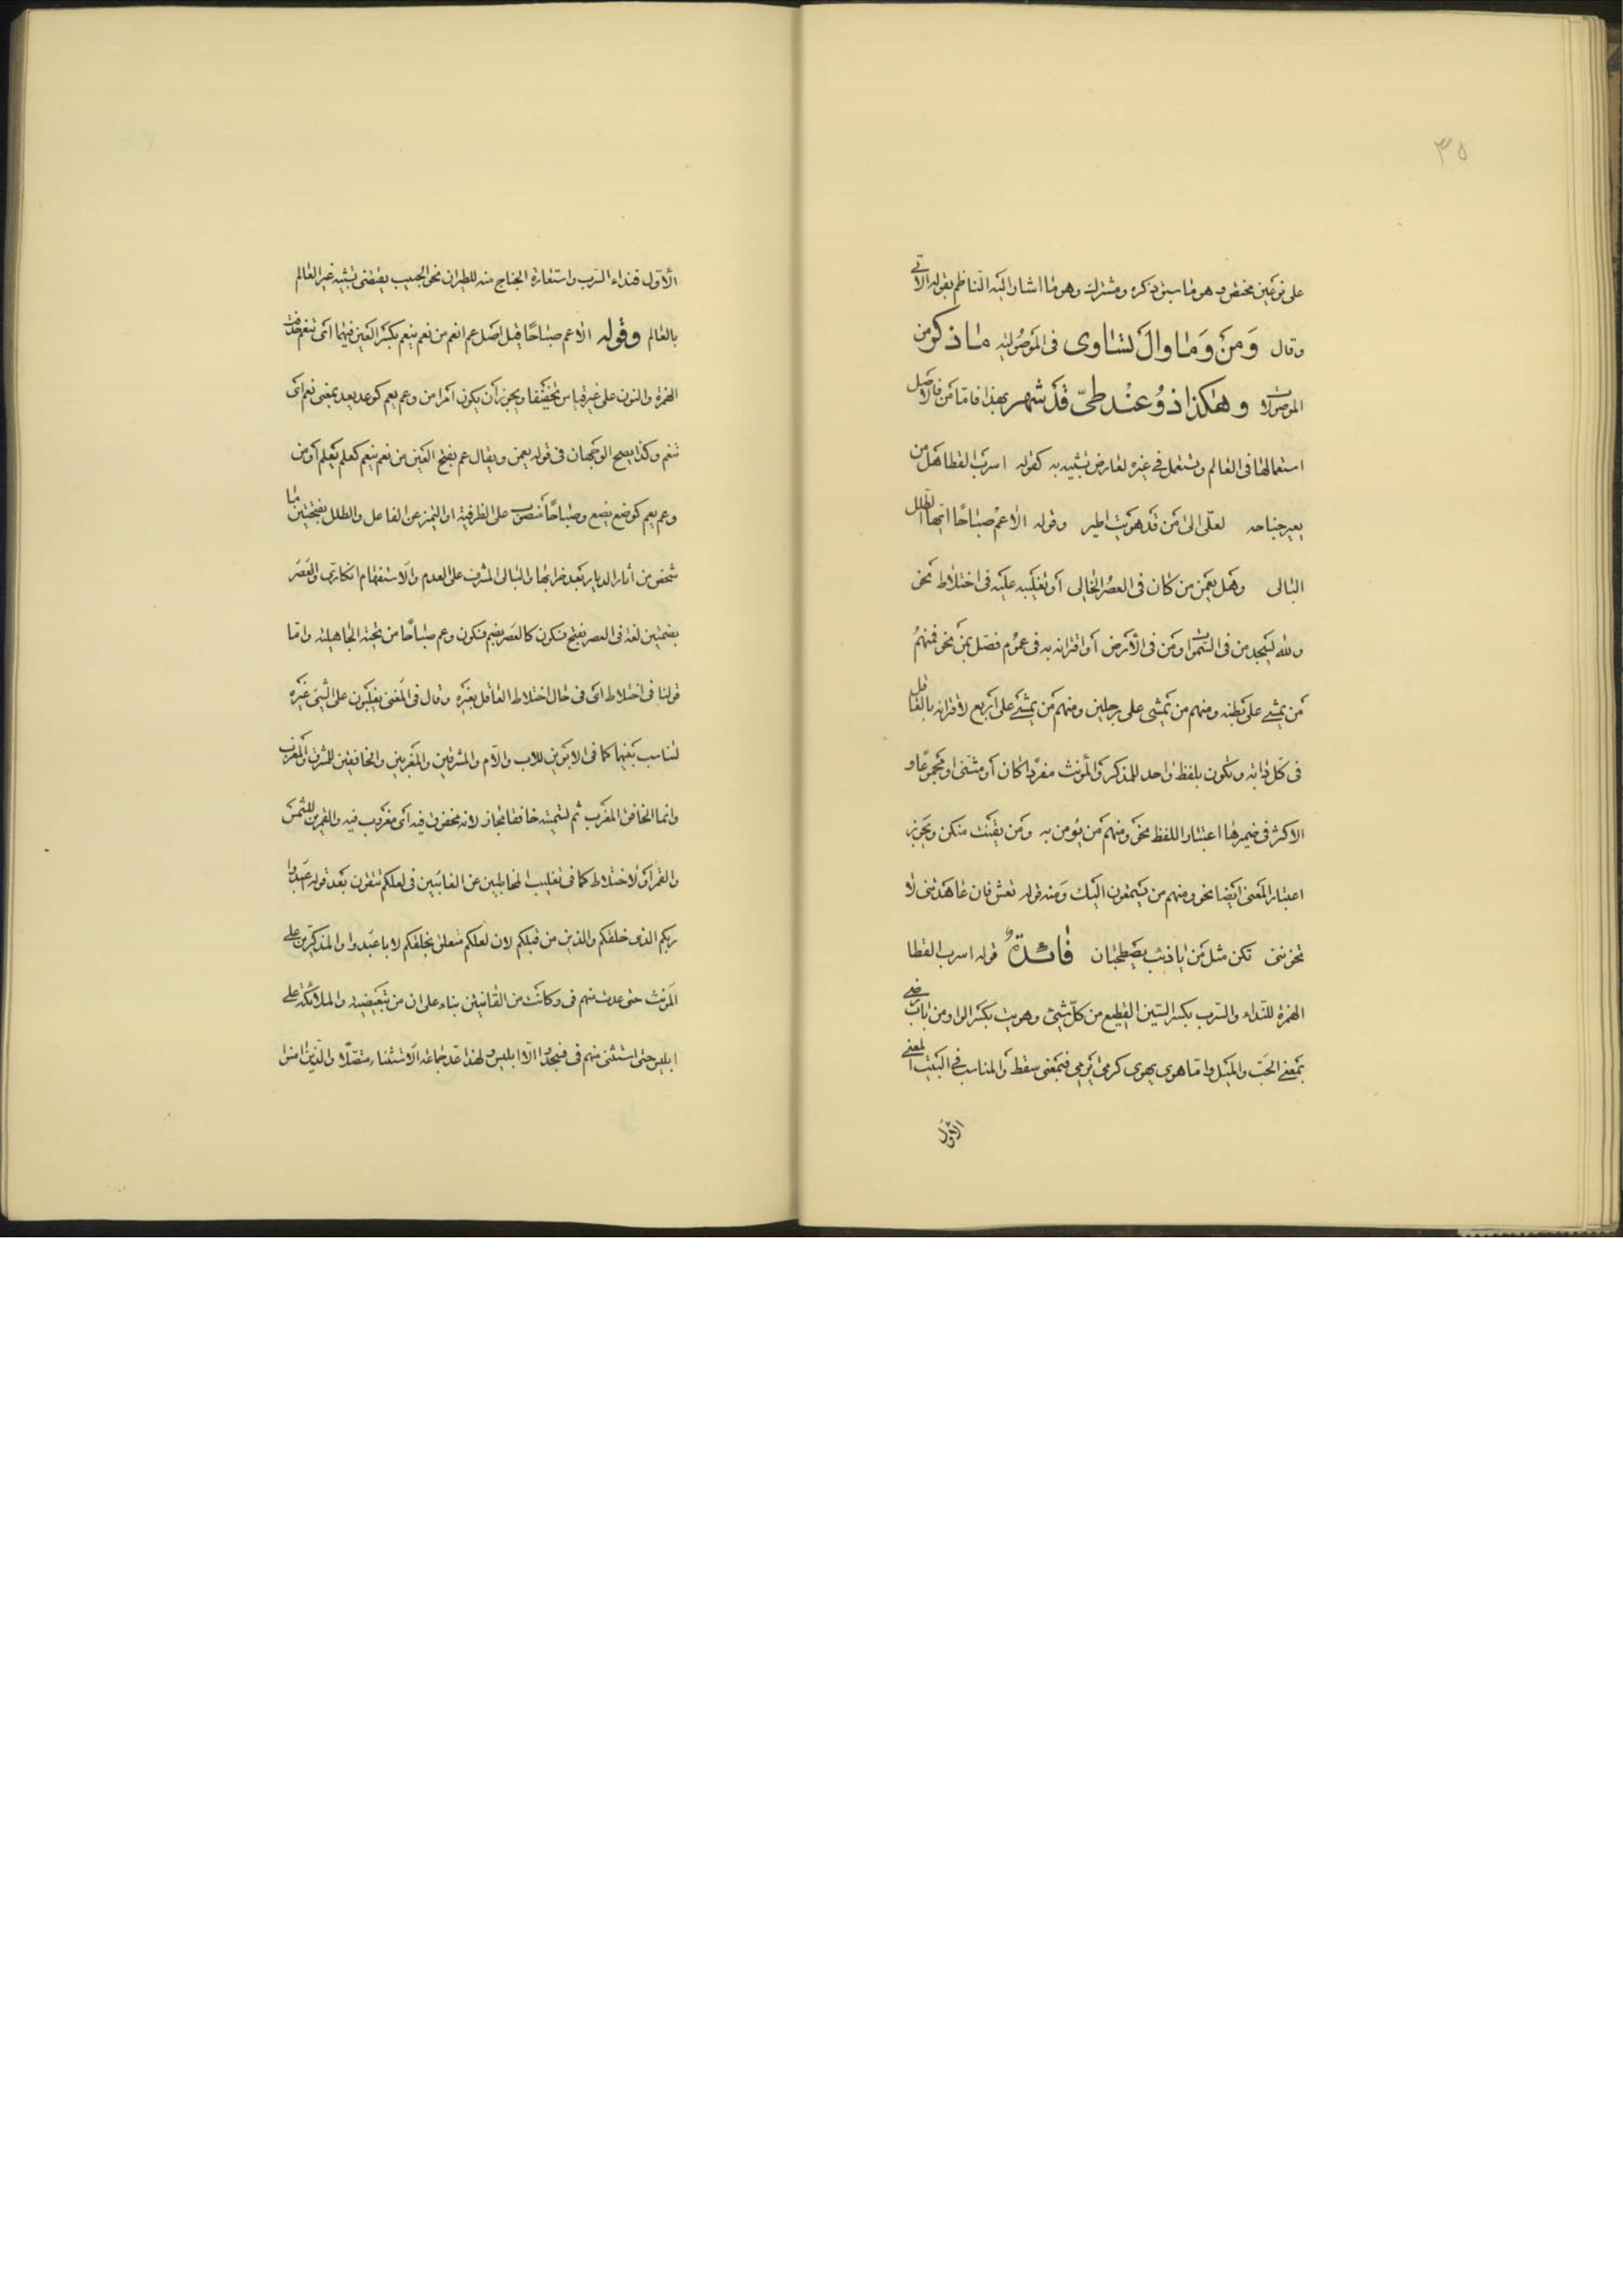 ٣٥
على نوعين مختص وهو ما سبق ذكره ومشترك وهو ما اشار اليه الناظم بقوله الآتي
وقال وَمَنْ وَمَا وال تساوى فى الموصولية ما ذكر من
الموصولات وهكذا ذُو عند طيّ قد شهر بهذا فاما مَن فالاصل
استعمالها فى العالم وتستعمل في غيره لعارض تشبيه به كقوله اسرب القطا هل من
يعير جناحه لعلّى الى من قد هويت اطير وقوله الاعم صباحًا ايها الطلل
البالى وهل يعمن من كان فى العصُر الخالى أو تغليبه عليه فى اختلاط نحو
ولله يسجد من فى السموات ومن فى الأرض أو اقترانه به فى عموم فصل بمن نحو فمنهم
من يمشي على بطنه ومنهم من يمشى على رجلين ومنهم من يمشي على اربع لاقترانه بالعاقل
فى كل دابة وتكون بلفظ واحد للمذكر والمؤنث مفردا كان أو مثنى او مجموعًا و
الاكثر فى ضميرها اعتبار اللفظ نحو ومنهم من يؤمن به ومن يقنت منكن ويجوز
اعتبار المعنى ايضا نحو ومنهم من يستمعون اليك ومنه قوله تعش فان عاهدتنى لا
تخوننى تكن مثل من يا ذئب يصطحبان فائدةٌ قوله اسرب القطا
الهمزة للنداء والسرب بكسر السين القطيع من كلّ شيئ وهويت بكسر الواو من باب رضي
بمعنى الحب والميل واما هوى يهوى كرمى يرمي فبمعنى سقط والمناسب في البيت المعنى
الاوّل
الأوّل فنداء السرب واستعارة الجناح منه للطيران نحو الحبيب يقتضى تشبيه غير العالم
بالعالم وقوله الاعم صباحًا قيل اصل عم انعم من نعم ينعم بكسر العين فيهما اى تنعم حذفت
الهمزة والنون على غير قياس تخفيفا ويجوز أن يكون امرا من وعم يعم كوعد يعد بمعنى نعم اى
تنعم وكذا يصح الوجهان فى قوله يعمن ويقال عم بفتح العين من نعم ينعم كعلم يعلم أو من
وعم يعم كوضع يضع وصباحًا منصوب على الظرفية او التميز عن الفاعل والطلل بفتحتين ما
شخص من آثار الديار بعد خرابها والبالى المشرف على العدم والاستفهام انكارى والعصر
بضمتين لغة فى العصر بفتح فسكون كالعصر بضم فسكون وعم صباحًا من تحية الجاهلية واما
قولنا فى اختلاط اى فى حال اختلاط العاقل بغيره وقال فى المغنى يغلبون على الشيئ غيره
لتناسب بينهما كما فى الابوين للاب والام والمشرقين والمغربين والخافقين للمشرق والمغرب
وانما الخافق المغرب ثم تسميته خافقا مجاز لانه مخفوق فيه اى مغروب فيه والقمرين للشمس
والقمر أو لاختلاط كما فى تغليب المخاطبين عن الغائبين فى لعلكم تتقون بعد قوله اعبدوا
ربكم الذى خلقكم والذين من قبلكم لان لعلكم متعلق بخلقكم لا باعبدوا والمذكرين على
المؤنث حتى عدت منهم فى وكانت من القانتين بناء على ان من تبعيضية والملائكة على
ابليس حتى استثنى منهم فى فسجدوا الا ابليس ولهذا عد جماعة الاستثناء متصلًا والذين امنوا